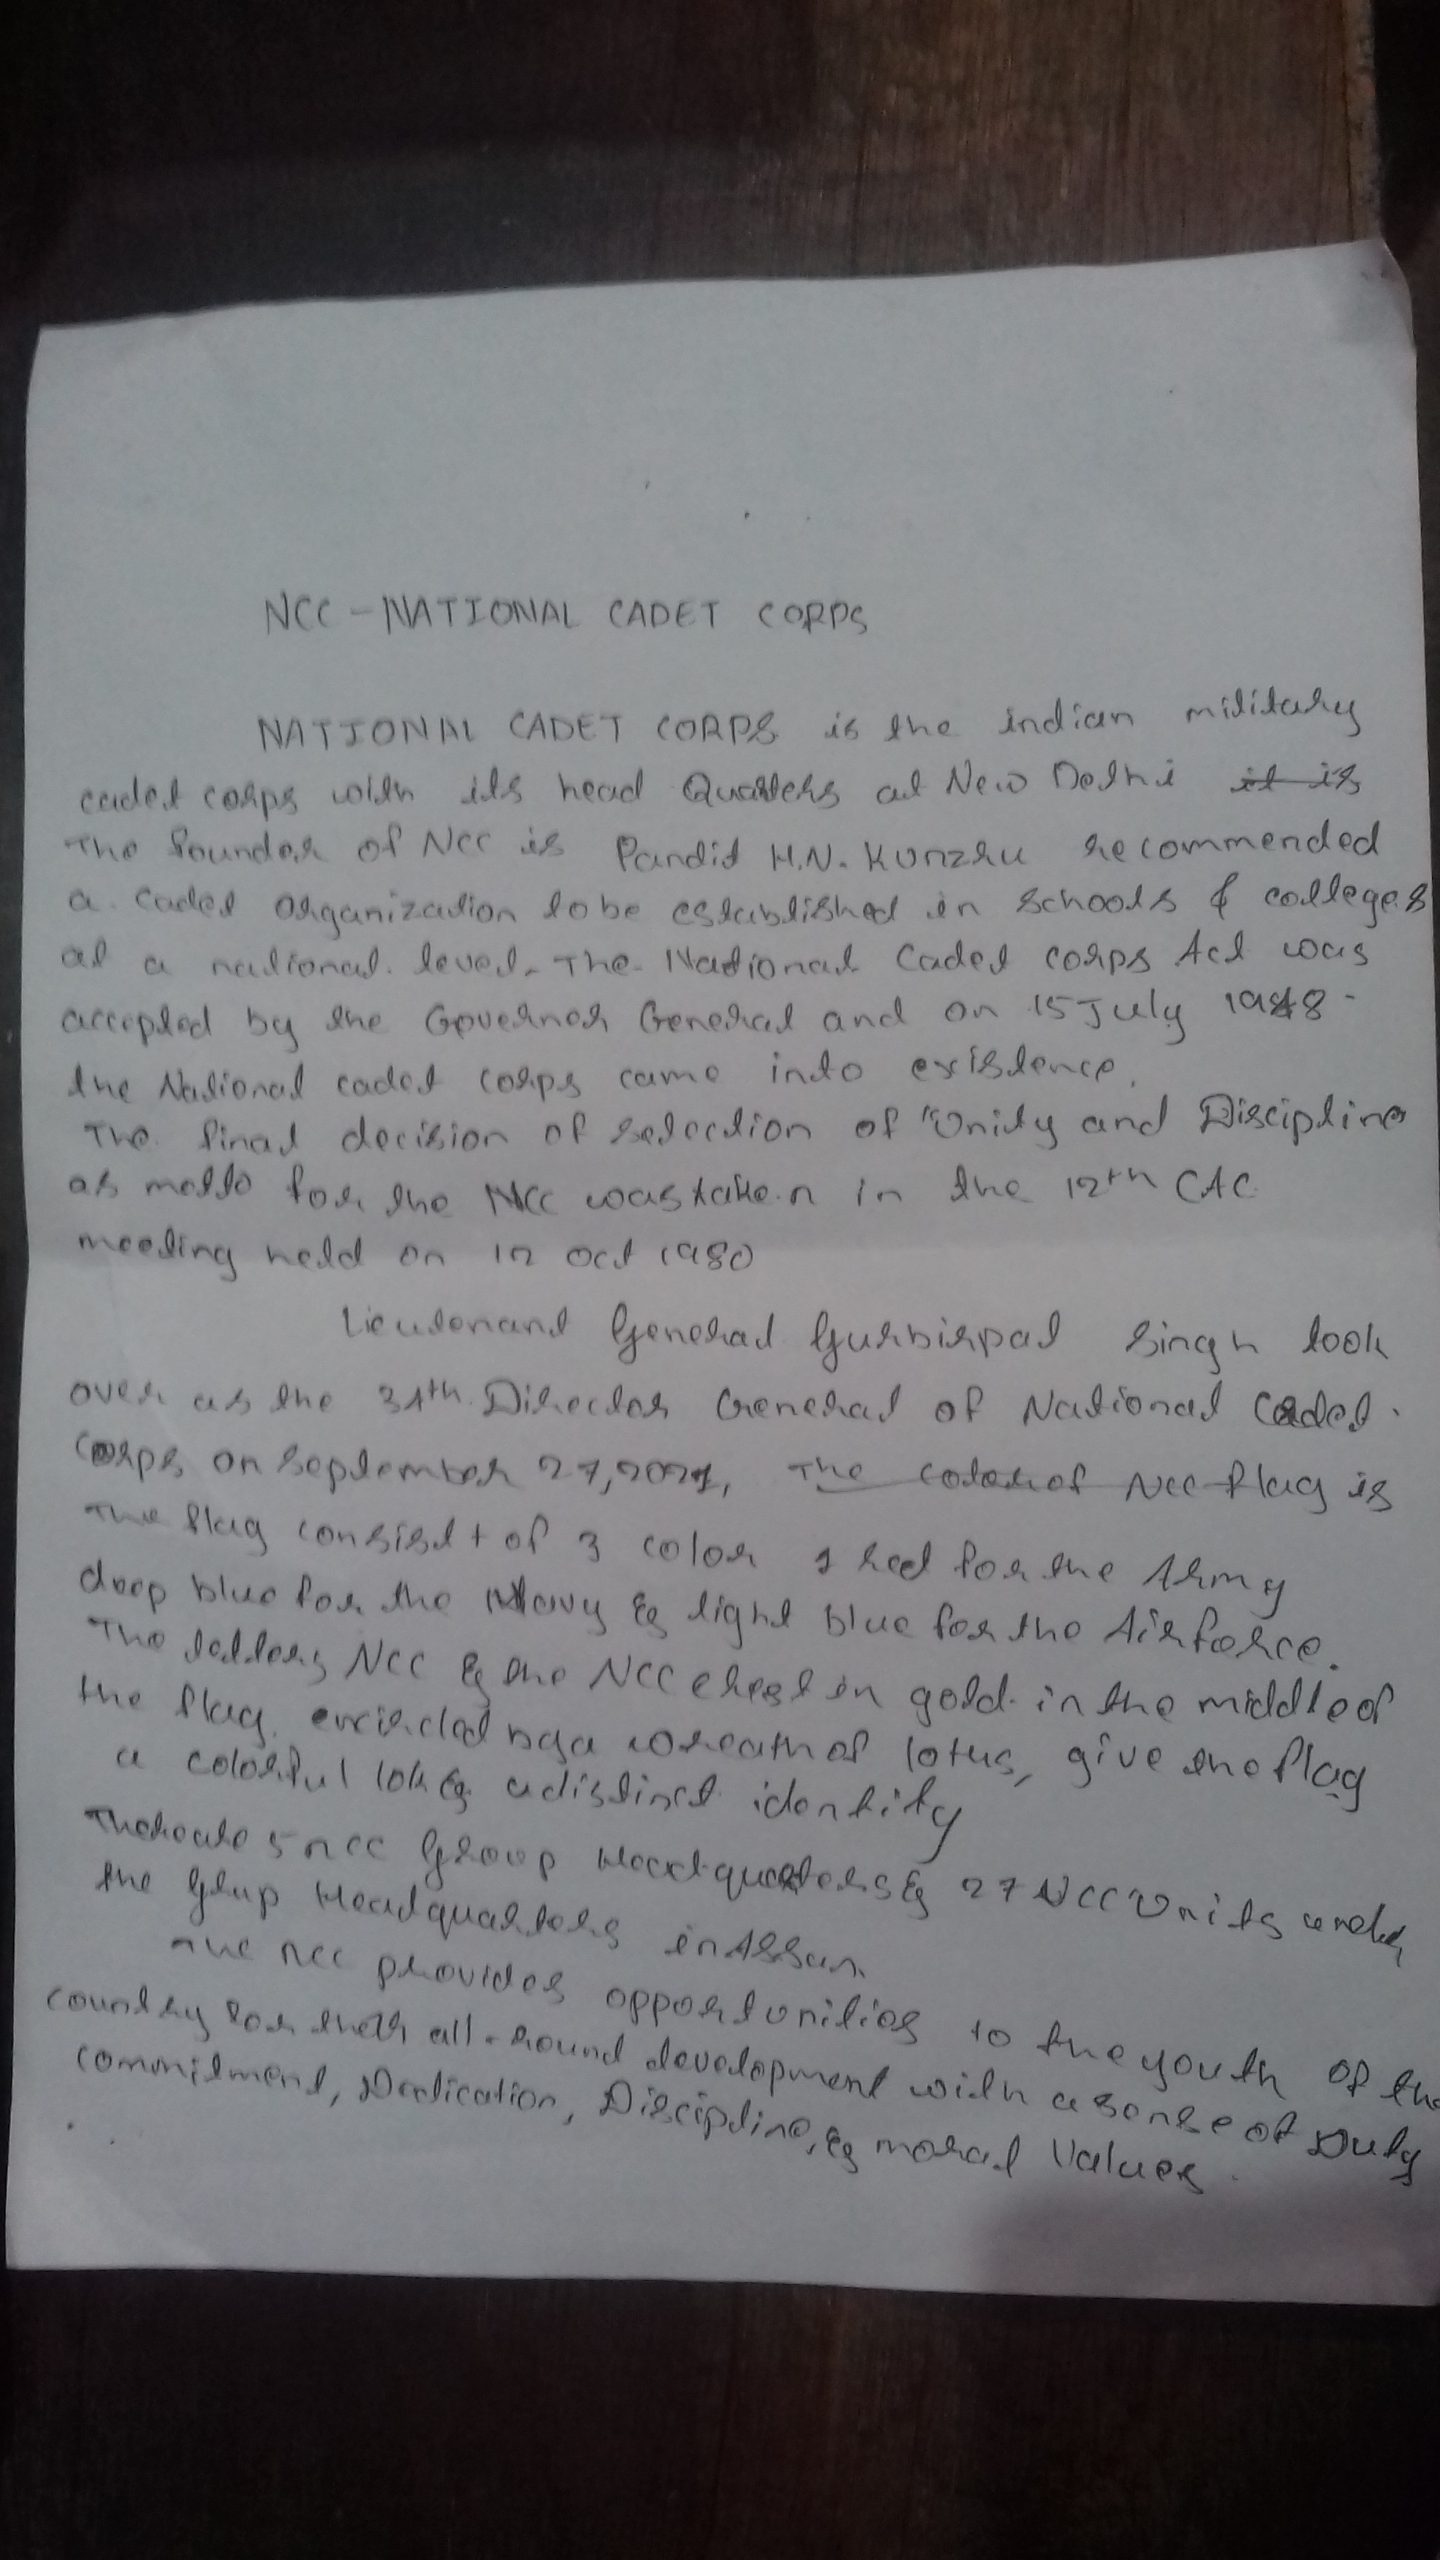 NCC - NATIONAL CADET CORPS
NATIONAL CADET CORPS is the indian military
cadet corps with its head Quarters at New Delhi it is
The founder of Ncc is Pandit H.N. Kunzru recommended
a cadet organization to be established in schools & colleges
at a national level. The National Cadet corps Act was
accepted by the Governor General and on 15 July 1948
the National cadet corps came into existence.
The final decision of selection of "Unity and Discipline
as motto for the NCC was taken in the 12th CAC
meeting held on 12 oct 1980
Lieutenant General Gurbirpal Singh took
over as the 34th Director General of National Cadet
Corps on september 27, 2021, The color of Ncc flag is
The flag consist of 3 color 1 red for the Army
deep blue for the Navy & light blue for the Airforce.
The letters NCC & the NCC crest in gold in the middle of
the flag encircled by a wreath of lotus, give the flag
a colorful lok & a distinct identity
There are 5 ncc Group Headquarters & 27 NCC Units under
the Grup Headquarters in Assam
The ncc provides opportunities to the youth of the
country for their all-round development with a sense of Duty
commitment, Dedication, Discipline, & moral Values.